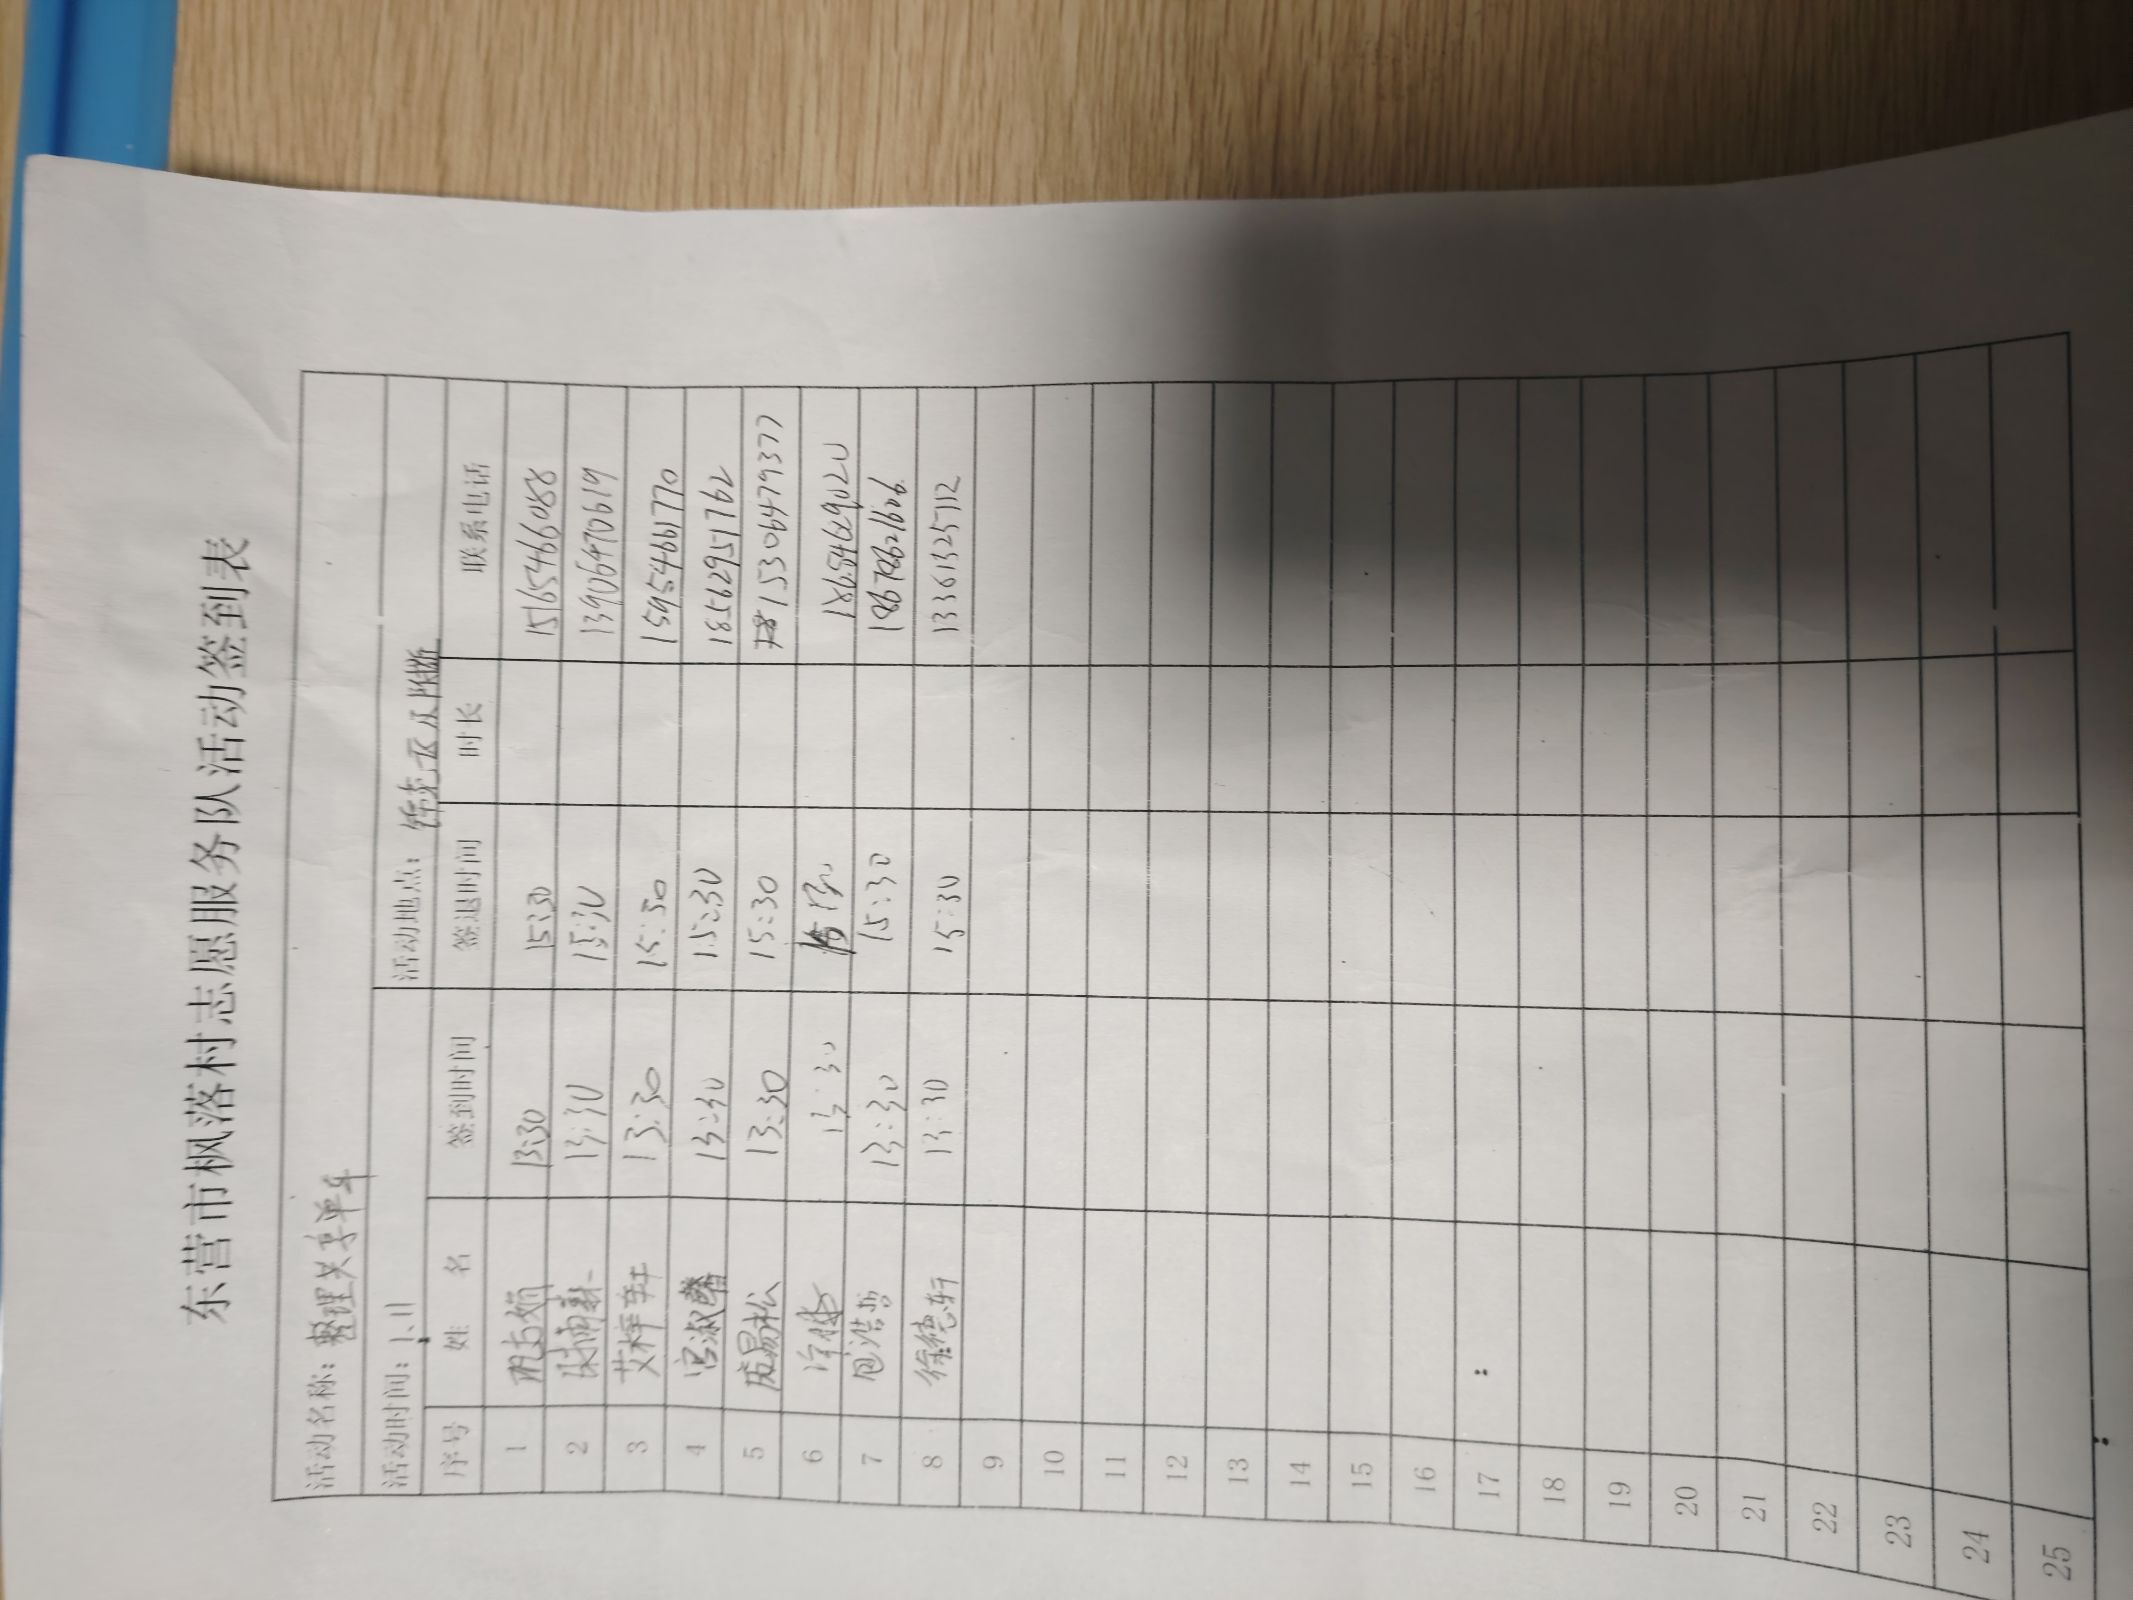 东营市枫落村志愿服务队活动签到表
活动名称：整理共享单车
活动时间：1.11 活动地点：
序号 姓 名 签到时间 签退时间 时长 联系电话
1 13:30 15:30 15165466088
2 13:30 15:30 13906470619
3 艾梓轩 13:30 15:30 15954661770
4 宫淑馨 13:30 15:30 18562951762
5 庞易松 13:30 15:30 15306479377
6 13:30
7 13:30 15:30
8 徐德轩 13:30 15:30 13361325712
9
10
11
12
13
14
15
16
17
18
19
20
21
22
23
24
25